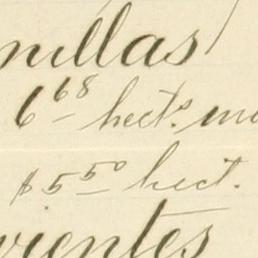 nillas
6 68 hects. m
$5 50 hect.
rientes